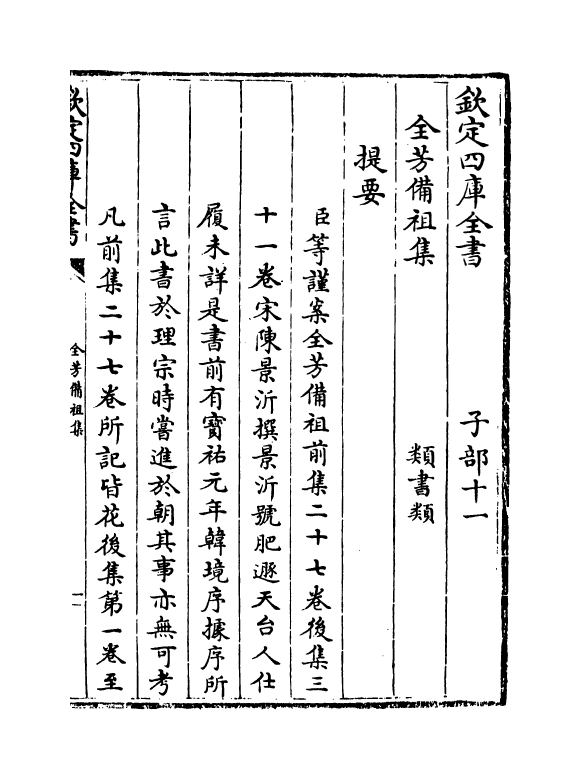 欽定四庫全書 子部十一
全芳備祖集 類書類
提要
臣等謹案全芳備祖前集二十七卷後集三
十一卷宋陳景沂撰景沂號肥遯天台人仕
履未詳是書前有寳祐元年韓境序據序所
言此書於理宗時嘗進於朝其事亦無可考
凡前集二十七卷所記皆花後集第一卷至
欽定四庫全書
全芳備祖集